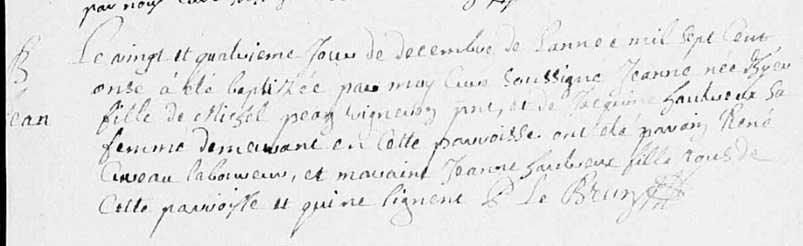 par nous Curé
B Le vingt et quatrieme Jour de decembre de Lannee mil sept Cent
onse à été baptizée par moy Curé soussigné Jeanne née hyer
ean fille de Michel pean vigneron pnt, et de Jacquine hautreux sa
femme demeurant en Cette parroisse ont été parain René
Cureau laboureur, et maraine Jeanne hautreux fille tous de
Cette parroisse et qui ne signent P Le Brun